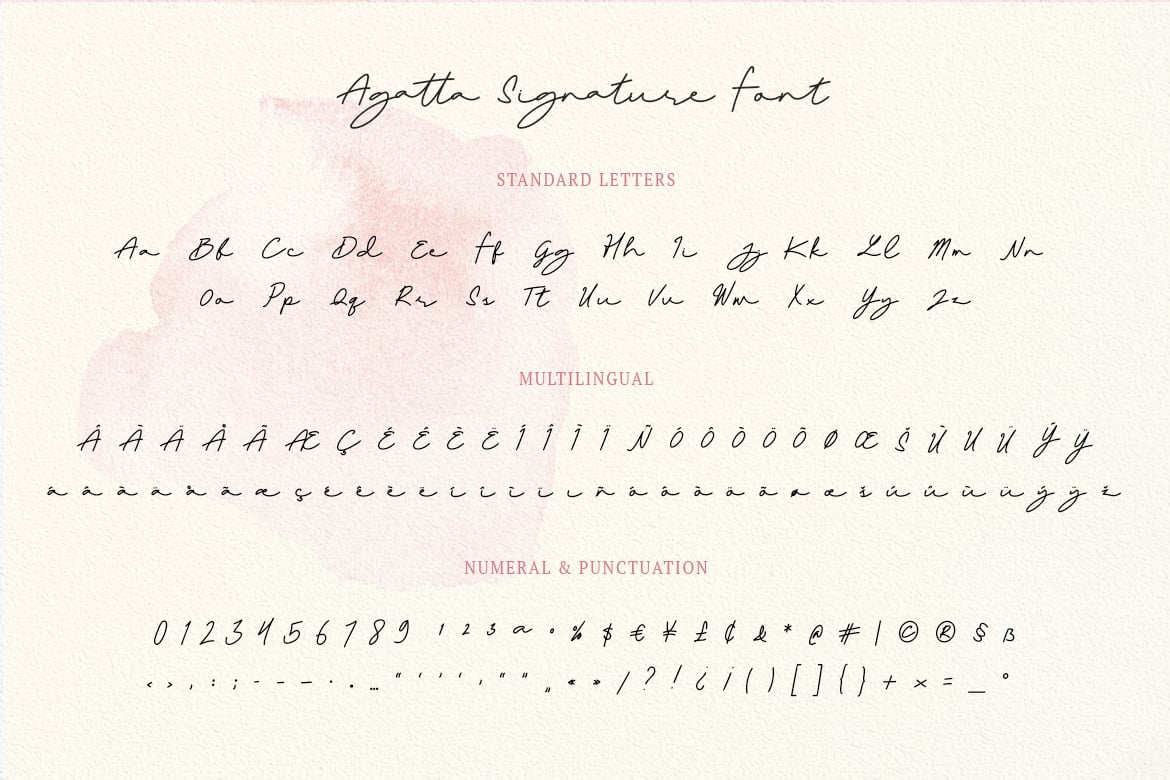 Agatta Signature Font
STANDARD LETTERS
Aa Bb Cc Dd Ee Ff Gg Hh Ii Jj Kk Ll Mm Nn
Oo Pp Qq Rr Ss Tt Uu Vv Ww Xx Yy Zz
MULTILINGUAL
Á Â À Ä Å Ã Æ Ç É Ê È Ë Í Î Ì Ï Ñ Ó Ô Ò Ö Õ Ø Œ Š Ù U Ü Ý Ÿ
á â à ä å ã æ ç é ê è ë í î ì ï ı ñ ó ô ò ö õ ø œ š ú û ù ü ý ÿ ž
NUMERAL & PUNCTUATION
0 1 2 3 4 5 6 7 8 9 ¹ ² ³ ª º % $ € ¥ £ ¢ & * @ # | © ® § ß
‹ › , : ; - – — · . … " ' ' ‘ ‚ “ ” „ « » / ? ! ¿ ¡ ( ) [ ] { } + × = _ °